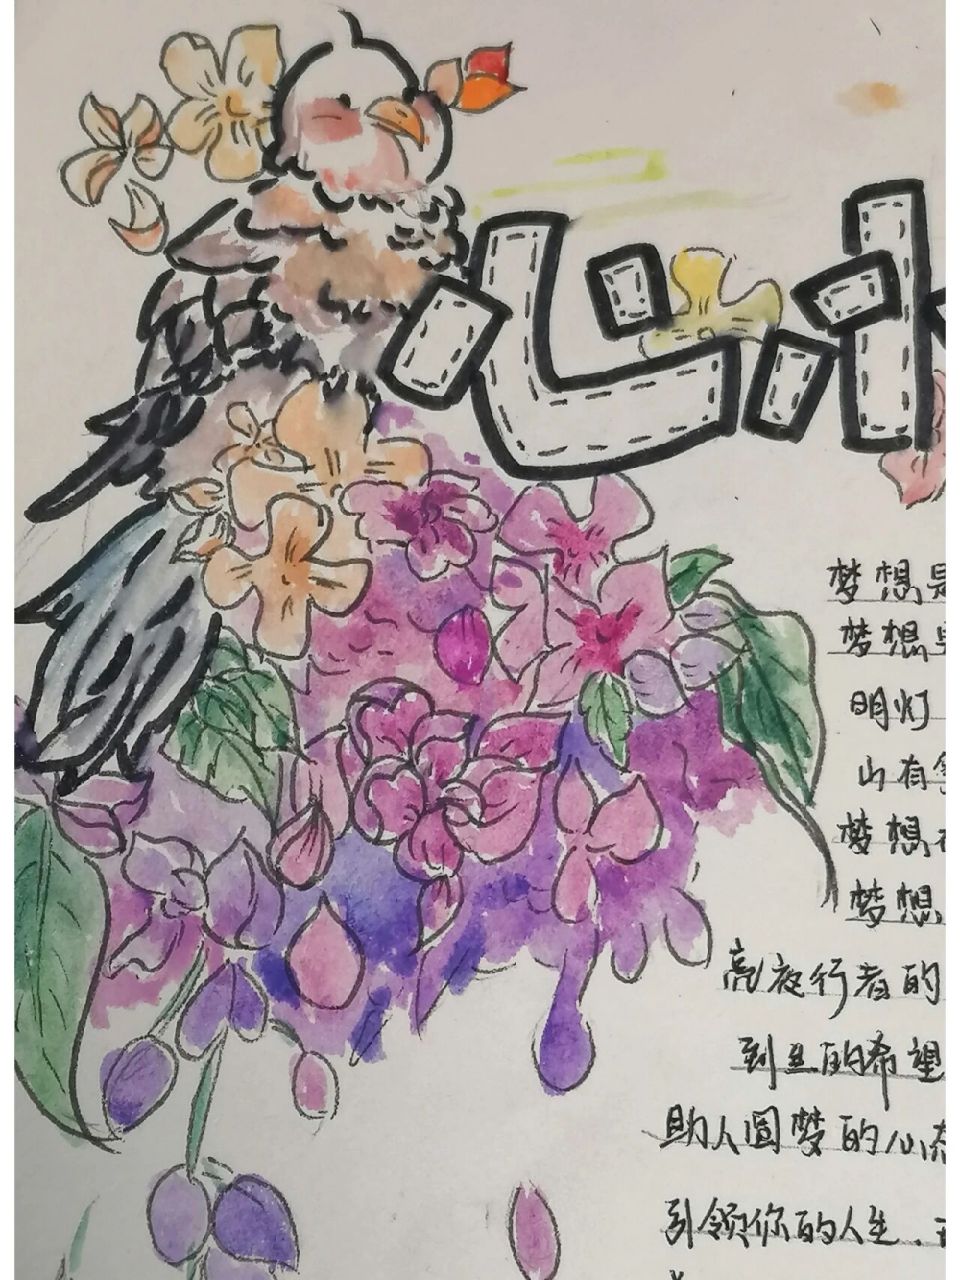 心
梦想是
梦想
明灯
山有
梦想
梦想
亮夜行者的
到丑的希望
助人圆梦的心态
引领你的人生.